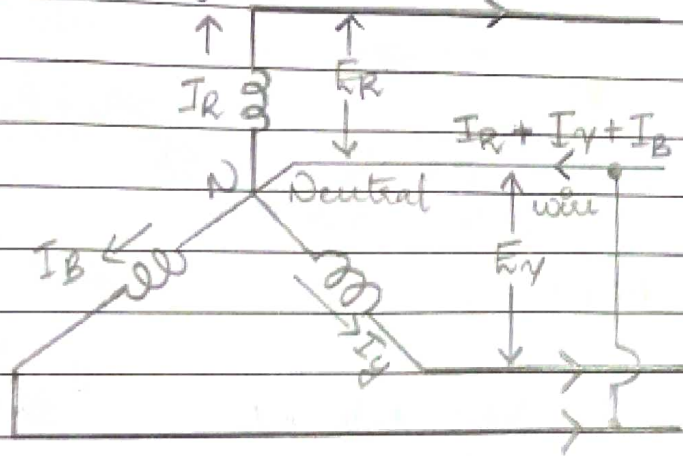 I_R
E_R
I_R + I_Y + I_B
N Neutral wire
I_B
E_Y
I_y